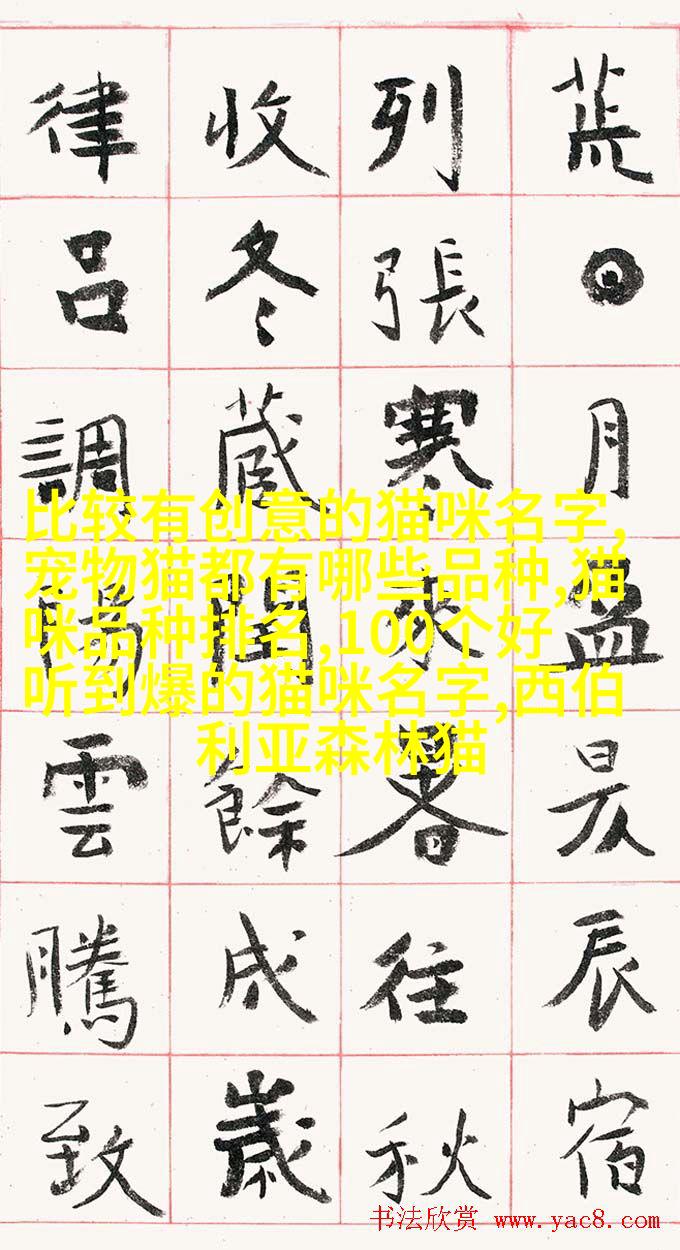 荒日月盈昃辰宿
列張寒來暑往秋
收冬藏閏餘成歲
律呂調陽雲騰致
比较有创意的猫咪名字,
宠物猫都有哪些品种,猫
咪品种排名,100个好
听到爆的猫咪名字,西伯
利亚森林猫
书法欣赏 www.yac8.com